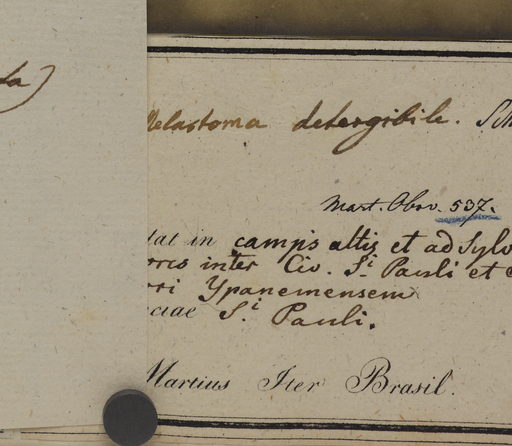 ta)
Melastoma detergibile. Sch
Mart. Obs. 537.
tat in campis altis et ad Sylv
inter Civ. S.i Pauli et
ri Ypanemensem
ciae S.i Pauli.
Martius Iter Brasil.